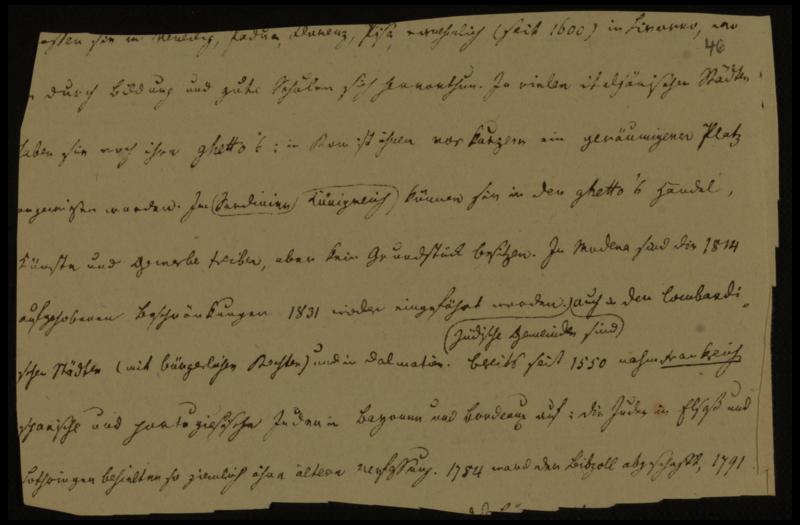 sie in Venedig, Padua, Florenz, Pisa, vornehmlich (seit 1600) in Livorno, wo
46
durch Bildung und gute Schulen sich hervorthun. In vielen italiänischen Städten
haben sie noch ihre ghetto's; in Rom ist ihnen vor Kurzem ein geräumigerer Platz
angewiesen worden. Im (Sardinien) Königreich können sie in den ghetto's Handel,
Künste und Gewerbe treiben, aber kein Grundstück besitzen. In Modena sind die 1814
aufgehobenen Beschränkungen 1831 wieder eingeführt worden. auch in den lombardi-
(jüdische Gemeinden sind)
schen Städten (mit bürgerlichen Rechten) und in Dalmatien. bereits seit 1550 nahm Frankreich
spanische und portugiesische Juden in Bayonne und Bordeaux auf; die Juden in Elsaß und
Lothringen behielten so ziemlich ihre ältere Verfassung. 1784 ward der Leibzoll abgeschafft, 1791